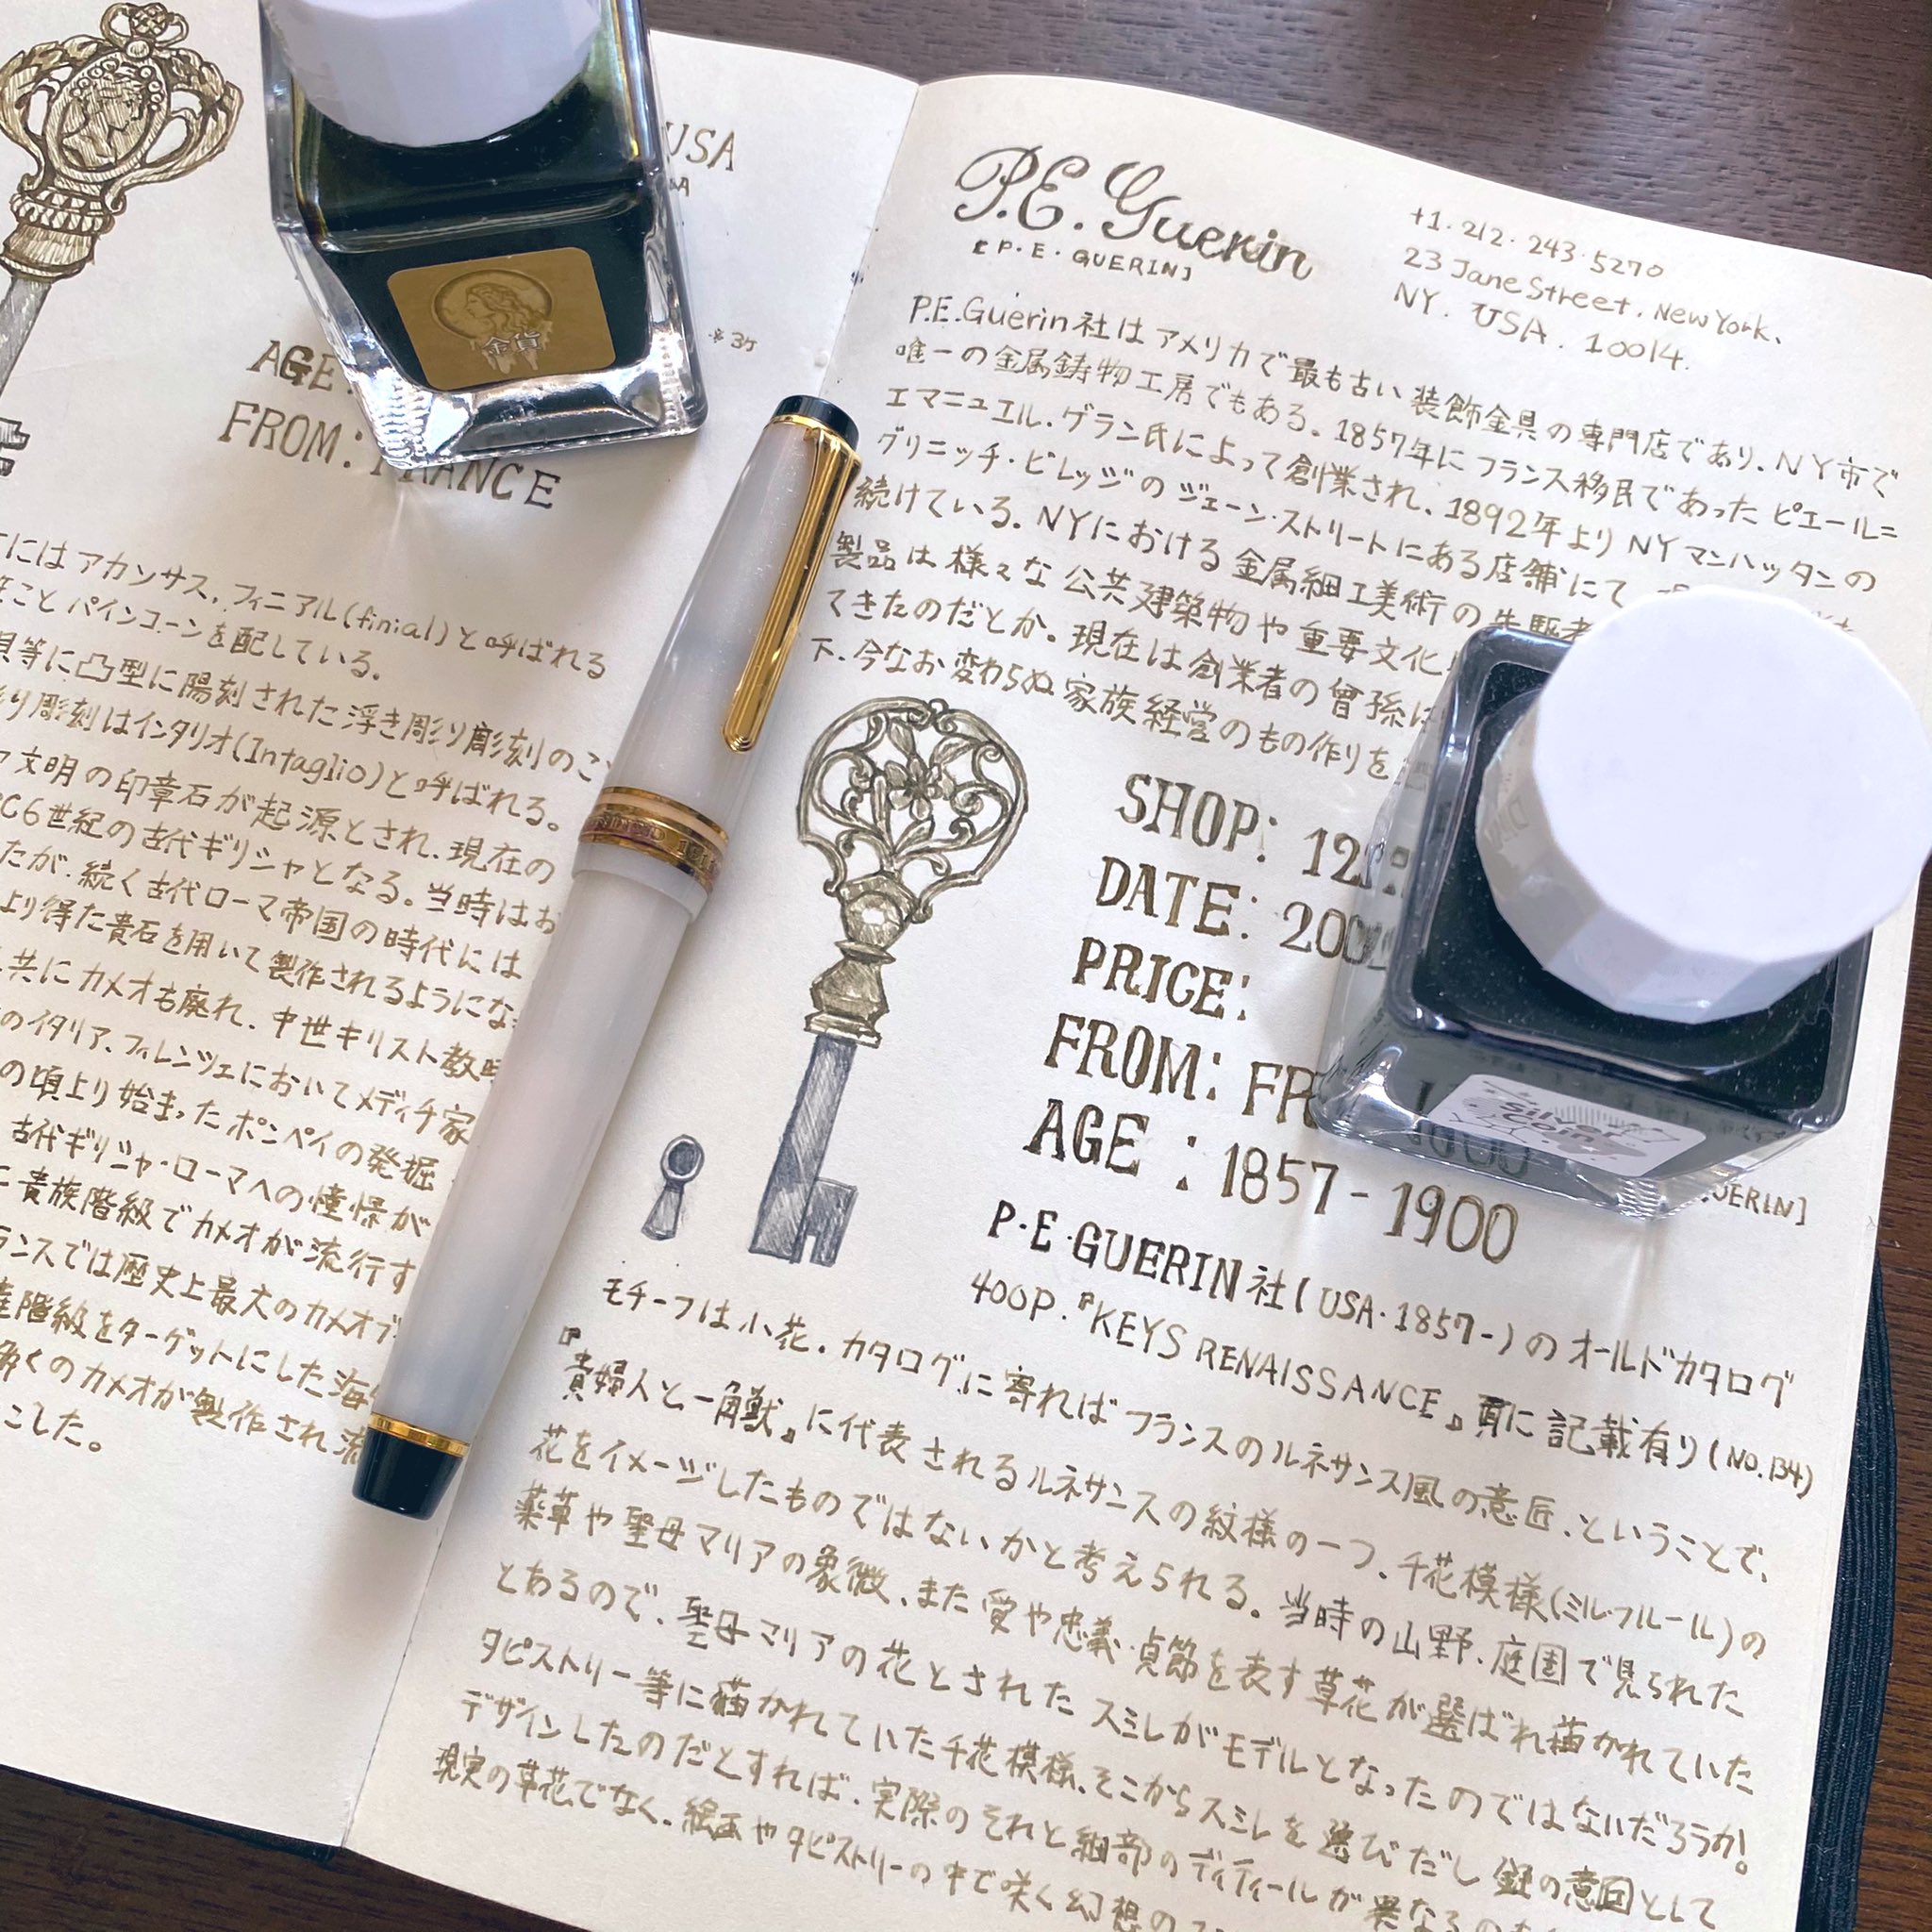 USA
※35
AGE
FROM: FRANCE
にはアカンサス、フィニアル(finial)と呼ばれる
ことパインコーンを配している。
等に凸型に陽刻された浮き彫り彫刻のこ
彫刻はインタリオ(Intaglio)と呼ばれる。
文明の印章石が起源とされ、現在の
C6世紀の古代ギリシャとなる。当時はお
たが、続く古代ローマ帝国の時代には
より得た貴石を用いて製作されるようにな
共にカメオも廃れ、中世キリスト教
のイタリア、フィレンツェにおいてメディチ家
の頃より始まったポンペイの発掘
古代ギリシャ・ローマへの憧憬が
貴族階級でカメオが流行す
ランスでは歴史上最大のカメオブ
階級をターゲットにした海
多くのカメオが製作され流
こした。
金貨
P.E.Guerin
[P・E・GUERIN]
+1.212.243.5270
23 Jane Street, New York,
NY. USA. 10014.
P.E.Guerin社はアメリカで最も古い装飾金具の専門店であり、NY市で
唯一の金属鋳物工房でもある。1857年にフランス移民であったピエール=
エマニュエル・ゲラン氏によって創業され、1892年よりNYマンハッタンの
グリニッチ・ビレッジのジェーン・ストリートにある店舗にて
続けている。NYにおける金属細工美術の先駆者
製品は様々な公共建築物や重要文化
てきたのだとか。現在は創業者の曾孫
下、今なお変わらぬ家族経営のもの作りを
SHOP: 12
DATE: 200
PRICE:
FROM: FR
AGE : 1857-1900
Silver Coin
GUERIN]
P・E・GUERIN社(USA・1857-)のオールドカタログ
400P.『KEYS RENAISSANCE』頁に記載有り(NO.134)
モチーフは小花。カタログに寄ればフランスのルネサンス風の意匠、ということで、
『貴婦人と一角獣』に代表されるルネサンスの紋様の一つ、千花模様(ミルフルール)の
花をイメージしたものではないかと考えられる。当時の山野、庭園で見られた
薬草や聖母マリアの象徴、また愛や忠義・貞節を表す草花が選ばれ描かれていた
とあるので、聖母マリアの花とされたスミレがモデルとなったのではないだろうか!
タピストリー等に描かれていた千花模様、そこからスミレを選びだし鍵の意匠として
デザインしたのだとすれば、実際のそれと細部のディティールが異なるのも
現実の草花でなく、絵画やタピストリーの中で咲く幻想の